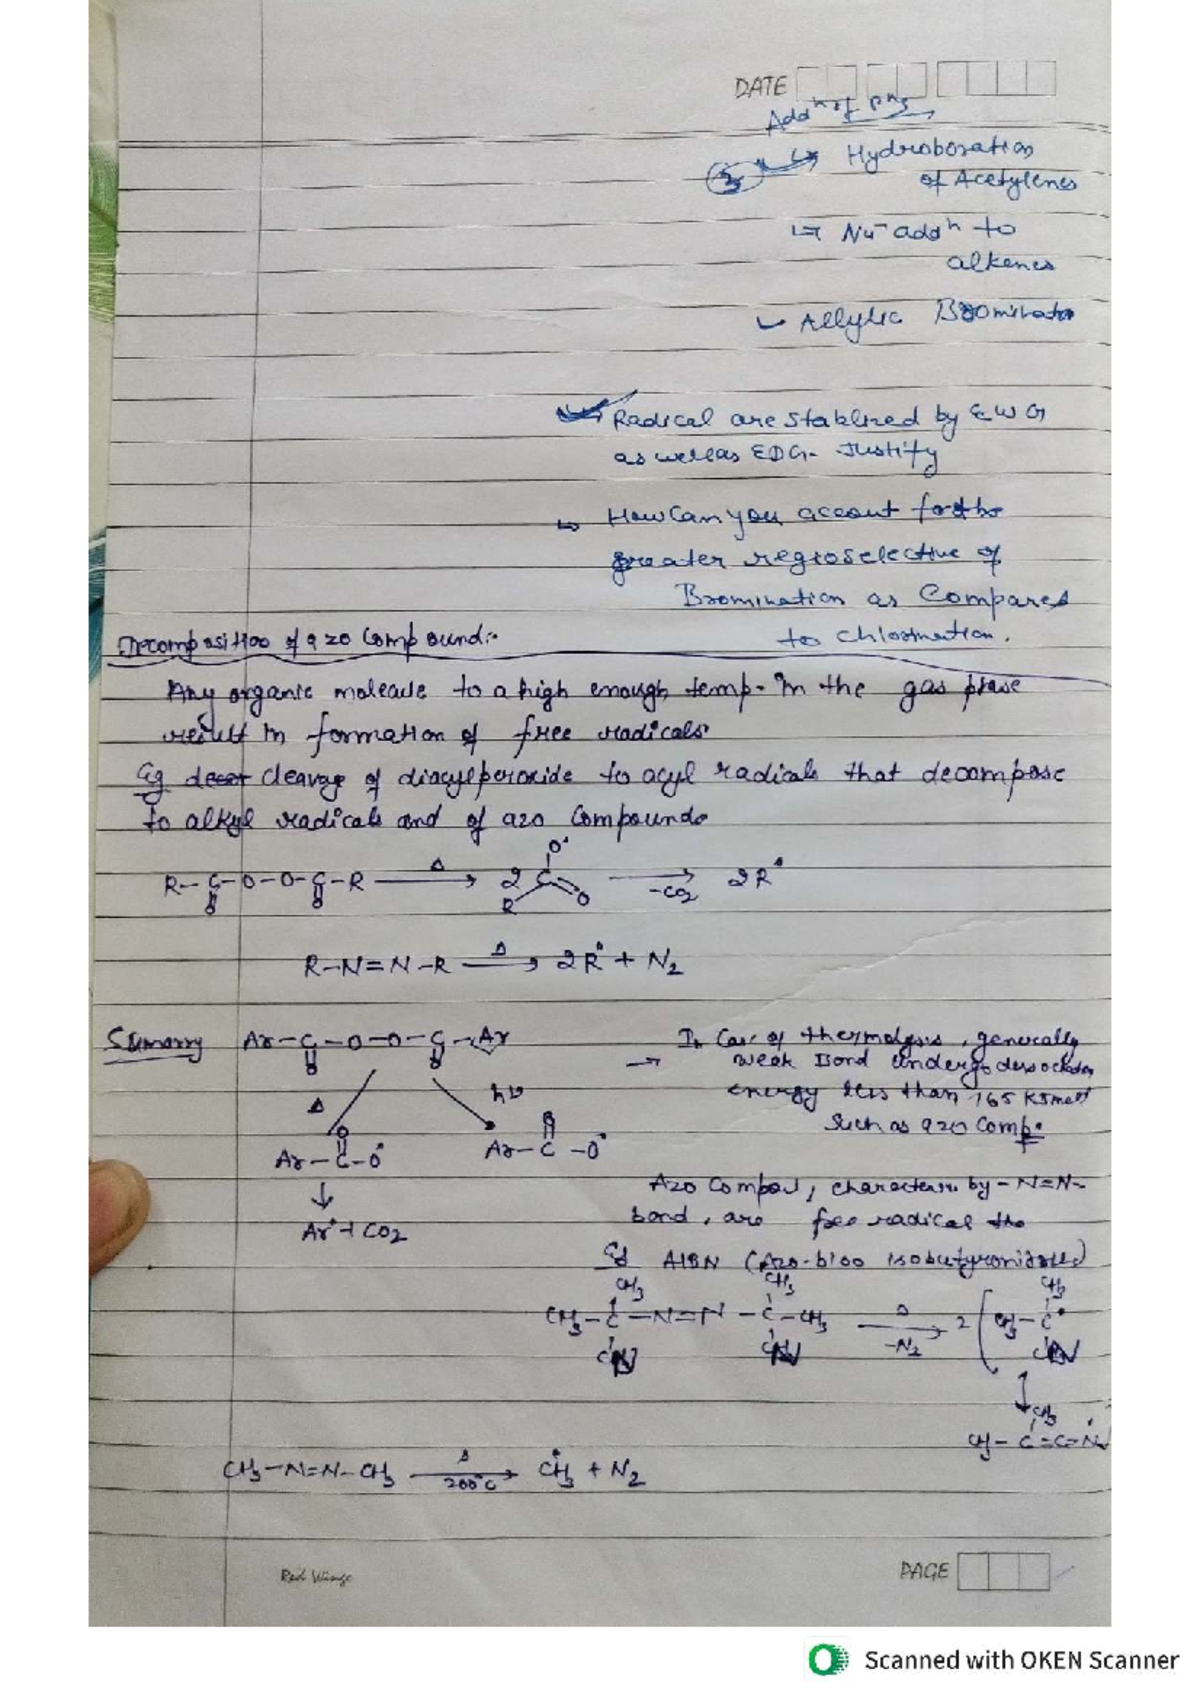 DATE
Addn of
3 ↳ Hydroboration
of Acetylenes
↳ Nu⁻ addn to
alkenes
↳ Allylic Bromination
Radical are stablized by EWG
as welleas EDG- Justify
↳ How Can you account forthe
greater regioselective of
Bromination as Compared
to chlorination.
Decomposition of azo Compound:-
Any organic moleule to a high enough temp- in the gas phase
result in formation of free radicals.
Eg cleavage of diacylperoxide to acyl radicals that decompose
to alkyl radicals and of azo Compounds
R-C-O-O-C-R → Δ 2 R C O O• → -CO2 2R•
O O
R-N=N-R → Δ 2R• + N2
Sumarry Ar-C-O-O-C-Ar
O O
In Case of thermolysis, generally
→ weak Bond undergo
energy less than 165 KJmol⁻¹
Such as azo Comp.
Δ hν
O O
Ar-C-O• Ar-C-O•
↓
Ar•+ CO2
Azo Compd, by -N=N-
bond, are free radical
Eg AIBN
CH3 CH3 CH3
CH3-C-N=N-C-CH3 → Δ -N2 2 ( CH3-C•
CN CN CN
↓
CH3
CH-C=C=N•
CH3-N=N-CH3 → Δ 200°C C•H3 + N2
Red Wings
PAGE
Scanned with OKEN Scanner